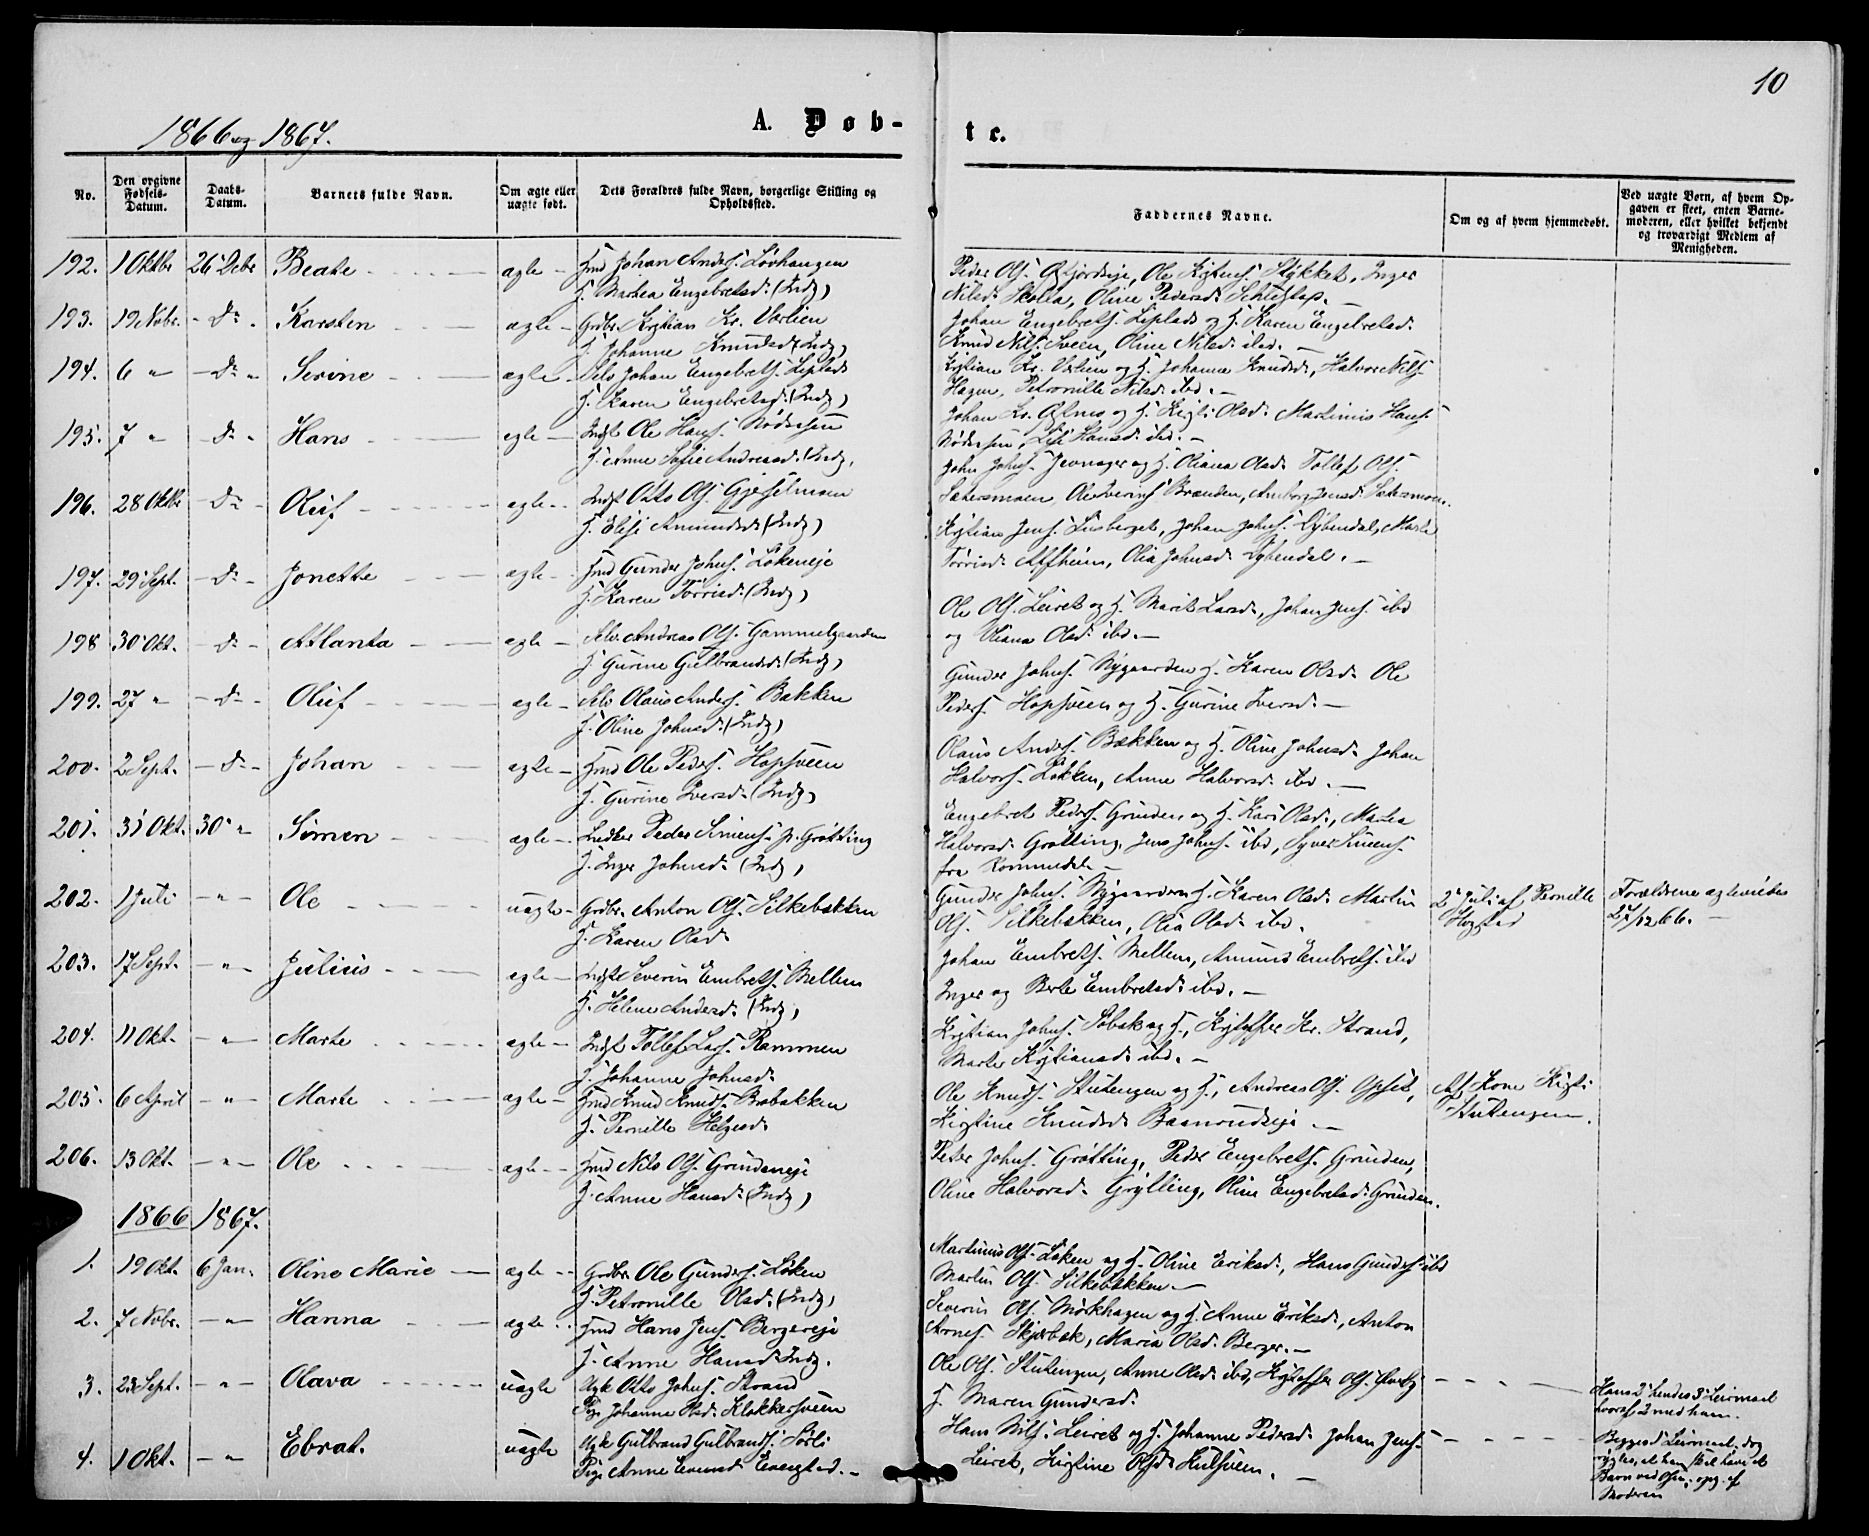 10
1866 og 1867.
A. Døb-
te.
No.
Den opgivne Fødsels-Datum.
Daabs-Datum.
Barnets fulde Navn.
Om ægte eller uægte født.
Dets Forældres fulde Navn, borgerlige Stilling og Opholdssted.
Faddernes Navne.
Om og af hvem hjemmedøbt.
Ved uægte Børn, af hvem Opgaven er skeet, enten Barnemoderen, eller hvilket bekjendt og troværdigt Medlem af Menigheden.
192. 1 Oktbr 26 Debr Beate ægte Johan Anders. Løvhaugen
H. Marthea Engebretsd. (Indg)
Nilsd. Skolla, Oline Pedersd.
193. 19 Novbr. Dº Karsten ægte Grdbr. Kristian Kr. Vorlien
H. Johanne Knudsd (Indg)
Johan Engebrets. Liplads og H. Karen Engebretsd.
Knud Nils. Sveen, Oline Nilsd. ibd.
194. 6 " Dº Serine ægte Johan Engebrets. Liplads
H. Karen Engebretsd. (Indg)
Kristian Kr. og H. Johanne Knudsd., Halvor Nils.
Hagen, Petronille Nilsd. ibd.
195. 7 " Dº Hans ægte Indst Ole Hans. Nødaasen
H. Anne Sofie Andreasd. (Indg,
Johan Kr. og H. Olsd. Martinius Hans.
Hansd. ibd.
196. 28 Oktbr Dº Oluf ægte Indst Otto Ols. Gjesselmoen
H. Elise Amundsd. (Indg)
John Johns. Jevnager og H. Oliana Olsd. Tollef Ols.
Sætersmoen, Ole Iverins. Brænden,
197. 29 Sept. Dº Jonette ægte Hmd Gunder Johns. Løkeneje
H. Karen Torrisd. (Indg)
Kristian Jens. Lusberget, Johan Johns. Dybendal, Marte
Torrisd. Olia Johnsd. Dybendal.
198 30 Okt. Dº Atlanta ægte Andreas Ols. Gammelgaarden
H. Gurine Gulbrandsd. (Indg)
Ole Ols. Leiret og H. Marit Larsd., Johan Jens. ibd
og Oliana Olsd. ibd.
199. 27 " Dº Oluf ægte Olaus Anders. Bakken
H. Oline Johnsd. (Indg)
Gunder Johns. Nygaarden H. Karen Olsd. Ole
Peders. Hopsveen og H. Gurine Iversd.
200. 2 Sept. Dº Johan ægte Hmd Ole Peders. Hopsveen
H. Gurine Iversd. (Indg)
Olaus Anders. Bækken og H. Oline Johnsd. Johan
Halvors. Løkken, Anne Halvorsd. ibd.
201. 31 Okt. 30 " Simen ægte Peder Simens. Grøtting
H. Inger Johnsd. (Indg)
Engebret Peders. Grinden og H. Kari Olsd., Martea
Halvorsd. Grøtting, Jens Johns. ibd, Syver Simens.
fra Rommedal
202. 1 Juli " Ole uægte Grdbr. Anton Ols. Silkebækken
H. Karen Olsd.
Gunder Johns. Nygaarden H. Karen Olsd. Martin
Ols. Silkebækken, Olia Olsd. ibd.
2 Juli af Pernille
Forældrene ægteviede
27/12 66.
203. 17 Sept. " Julius ægte Indst Severin Embrets. Mellem
H. Helene Andersd. (Indg)
Johan Embrets. Mellem, Amund Embrets. ibd
Inger og Berte Embretsd. ibd.
204. 11 Okt. " Marte ægte Indst Tollef Lars. Rammen
H. Johanne Johnsd.
Kristian Johns. Søbak og H., Kristoffer Kr. Strand,
Marte Kristiansd. ibd.
205. 6 April " Marte ægte Hmd Knud Knuds. Brobakken
H. Pernille Helgesd.
Ole Knuds. Stutengen og H., Andreas Ols. Opset,
Kirstine Knudsd.
Af Kone
Stutengen.
206. 13 Okt. " Ole ægte Hmd Nils Ols. Grindeneje
H. Anne Hansd. (Indg)
Peter Johns. Grøtting, Peder Engebrets. Grinden,
Oline Halvorsd. Grøtting, Oline Engebretsd. Grinden.
1866 1867.
1. 19 Okt. 6 Jan. Oline Marie ægte Grdbr Ole Gunders. Løken
H. Petronille Olsd. (Indg)
Martinus Ols. Løken og H. Oline Eriksd., Hans Gunders. ibd
Martin Ols. Silkebækken
2. 7 Novbr. " Hanna ægte Hmd Hans Jens. Bergereje
H. Anne Hansd. Indg.
Severin Ols. Mørkhagen og H. Anne Eriksd., Anton
Arnes. Skjærbæk, Maria Olsd. Berger.
3. 23 Sept. " Olava uægte Ugk Otto Johns. Strand
Pige Johanne Olsd. Klokkersveen
Ole Ols. Stutengen, Anne Olsd. ibd, Kristoffer Ols.
H. Maren Gundersd.
Hans 2' hendes 3' Leirmaal
hvoraf 2 med ham.
4. 1 Okt. " Ebrat. uægte Ugk Gulbrand Gulbrands. Sorli
Pige Anne Evensd. Evenstad.
Hans Nils. Leiret og H. Johanne Pedersd. Johan Jens.
Leiret, Kirstine Olsd. Hulsveen.
Begges 1' Leirmaal, dog
Barn ved
Moderen